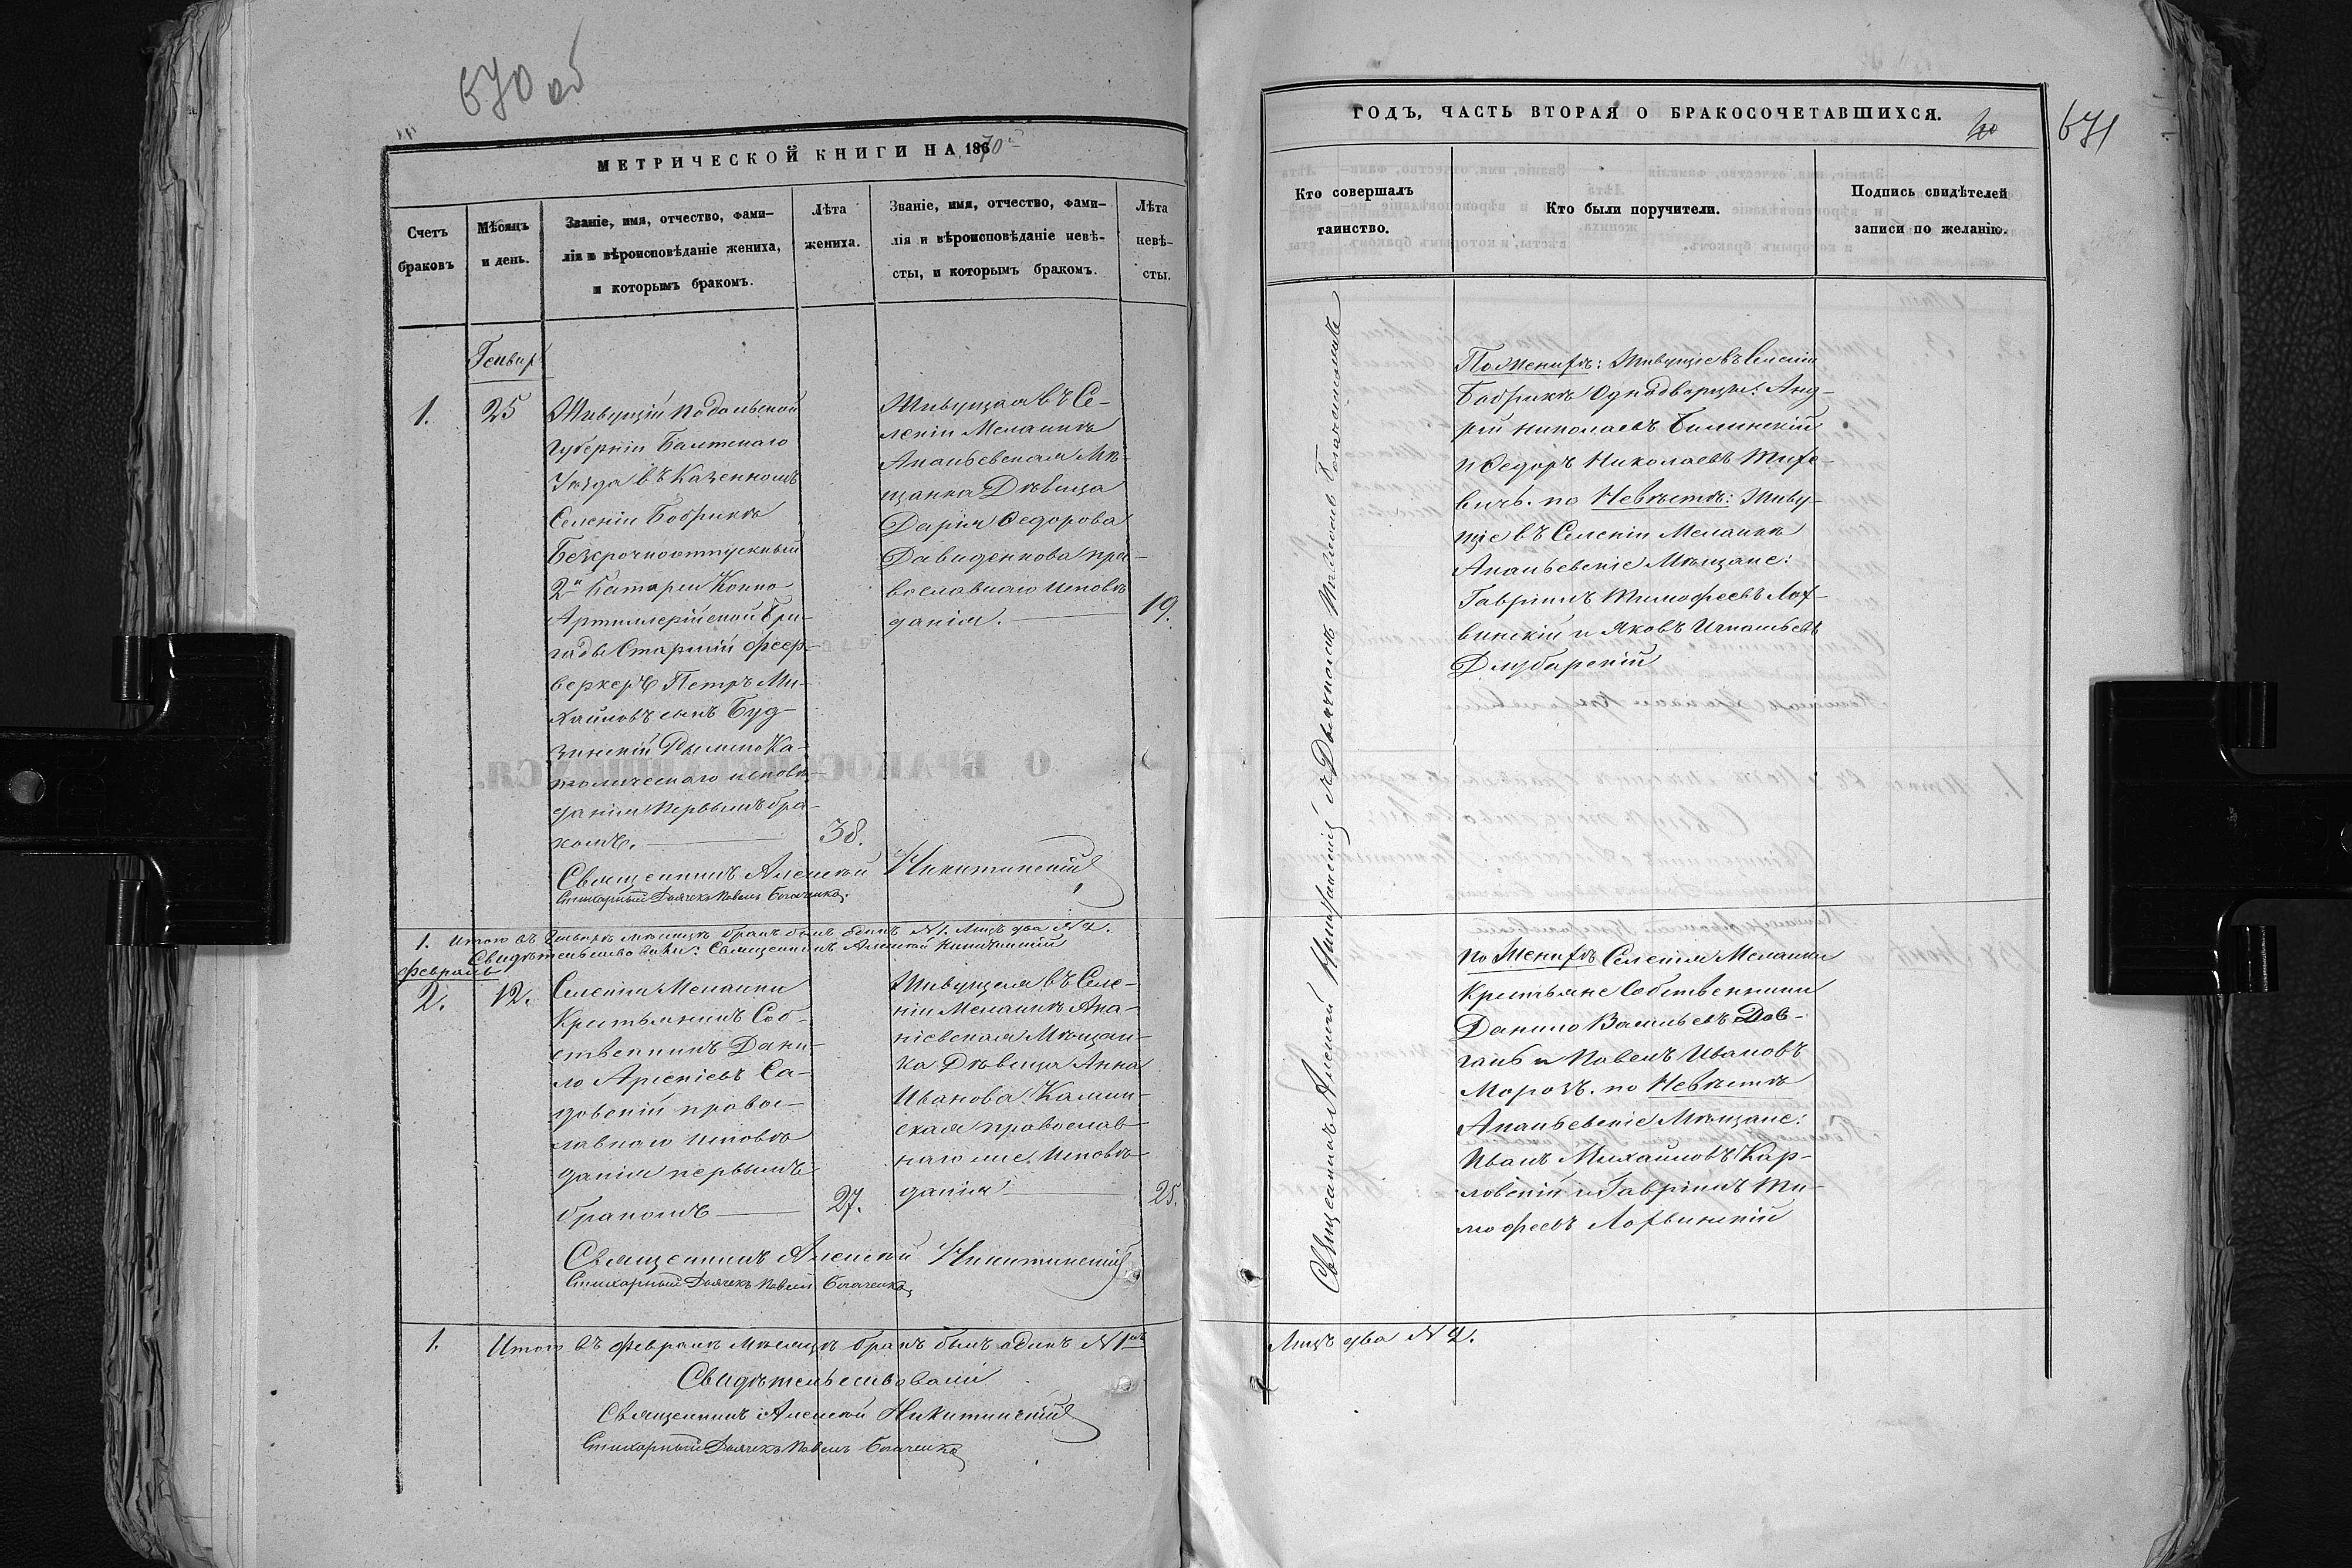 670 об
МЕТРИЧЕСКОЙ КНИГИ НА 1870й
Счетъ браковъ
Мѣсяцъ и день.
Званіе, имя, отчество, фами-
лія и вѣроисповѣданіе жениха,
и которымъ бракомъ.
Лѣта
жениха.
Званіе, имя, отчество, фами-
лія и вѣроисповѣданіе невѣ-
сты, и которымъ бракомъ.
Лѣта
невѣ-
сты.
Генвар
1.
25
Живущій Подольской
Губерніи Балтскаго
Уѣзда въ Казенномъ
Селеніи Бобрикѣ
Безсрочноотпускный
2й Батареи Конно
Артиллерійской Бри-
гады Старшій Феер-
веркеръ Петръ Ми-
хайловъ сынъ Буд-
зинскій Римско Ка-
толическаго исповѣ-
данія первымъ бра-
комъ.
38.
Живущая въ Се-
леніи Меланкѣ
Ананьевская Мѣ-
щанка Дѣвица
Дарія Федорова
Давиденкова пра-
вославнаго исповѣ
данія.
19.
Священникъ Алексій Никитинскій
Стихарный Дьячекъ Павелъ Богаченко.
1. Итого въ Генварѣ мѣсяцѣ бракъ былъ одинъ №1. Лицъ два №2.
Свидѣтельствовали: Священникъ Алексій Никитинскій
Февраль
2.
12.
Селенія Меланки
Крестьянинъ Соб-
ственникъ Дани-
ло Арсеніевъ Са-
довскій правос-
лавнаго исповѣ
данія первымъ
бракомъ
27.
Живущая въ Селе-
ніи Меланкѣ Ана-
ніевская Мѣщан-
ка Дѣвица Анна
Иванова
православ
наго исповѣ-
данія
25.
Священникъ Алексій Никитинскій
Стихарный Дьячекъ Павелъ Богаченко
1.
Итого въ Февралѣ мѣсяцѣ бракъ былъ одинъ №1й
Свидѣтельствовали
Священникъ Алексій Никитинскій
Стихарный Дьячекъ Павелъ Богаченко
ГОДЪ, ЧАСТЬ ВТОРАЯ О БРАКОСОЧЕТАВШИХСЯ.
671
Кто совершалъ
таинство.
Кто были поручители.
Подпись свидѣтелей
записи по желанію.
Священникъ Алексій Никитинскій съ Дьячкомъ Павломъ Богаченкомъ
По Женихѣ: Живущіе въ Селеніи
Бобрикѣ Однодворцы: Анд-
рій Николаевъ Билинскій
и Федоръ Николаевъ
вичъ. по Невѣстѣ: Живу-
щіе въ Селеніи Меланкѣ
Ананьевскіе Мѣщане:
Гавріилъ Тимофеевъ Лох-
винскій и Яковъ Игнатьевъ
Длубарскій
По Женихѣ Селенія Меланки
Крестьяне Собственники
Данило Васильевъ Дов-
гань и Павелъ Ивановъ
Морозъ. по Невѣстѣ
Ананьевскіе Мѣщане:
Иванъ Михайловъ Кар-
ловскій и Гавріилъ Ти-
мофеевъ Лохвинскій
Лицъ два №2.